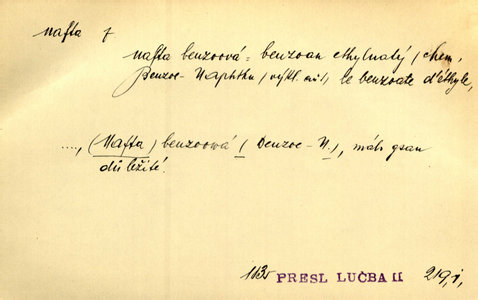 nafta f
nafta benzoová = benzoan ethylnatý, chem,
Benzoe-Naphtha, le benzoate d'éthyle,
..., (Nafta) benzoowá (Benzoe-N.),
důležité.
PRESL LUČBA II 219,